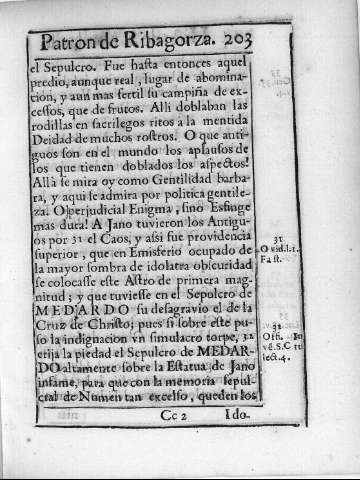 Patron de Ribagorza. 203
el Sepulcro. Fue hasta entonces aquel
predio, aunque real, lugar de abomina-
cion, y aun mas fertil su campiña de ex-
cessos, que de frutos. Alli doblaban las
rodillas en sacrilegos ritos a la mentida
Deidad de muchos rostros. O que anti-
guos son en el mundo los aplausos de
los que tienen doblados los aspectos!
Allà se mira oy como Gentilidad barba-
ra, y aqui se admira por politica gentile-
za. O perjudicial Enigma, sino Esfinge
mas dura! A Jano tuvieron los Antigu-
os por 31 el Caos, y assi fue providencia
superior, que en Emisferio ocupado de
la mayor sombra de idolatra obscuridad
se colocasse este Astro de primera mag-
nitud; y que tuviesse en el Sepulcro de
MEDARDO su desagravio el de la
Cruz de Christo; pues si sobre este pu-
so la indignacion vn simulacro torpe, 32
erija la piedad el Sepulcro de MEDAR-
DO altamente sobre la Estatua de Jano
infame, para que con la memoria sepul-
cral de Numen tan excelso, queden los
Cc 2 Ido-
31
Ovid.l.1.
Fast.
32
Offi. In
vẽ.S.C
lect.4.